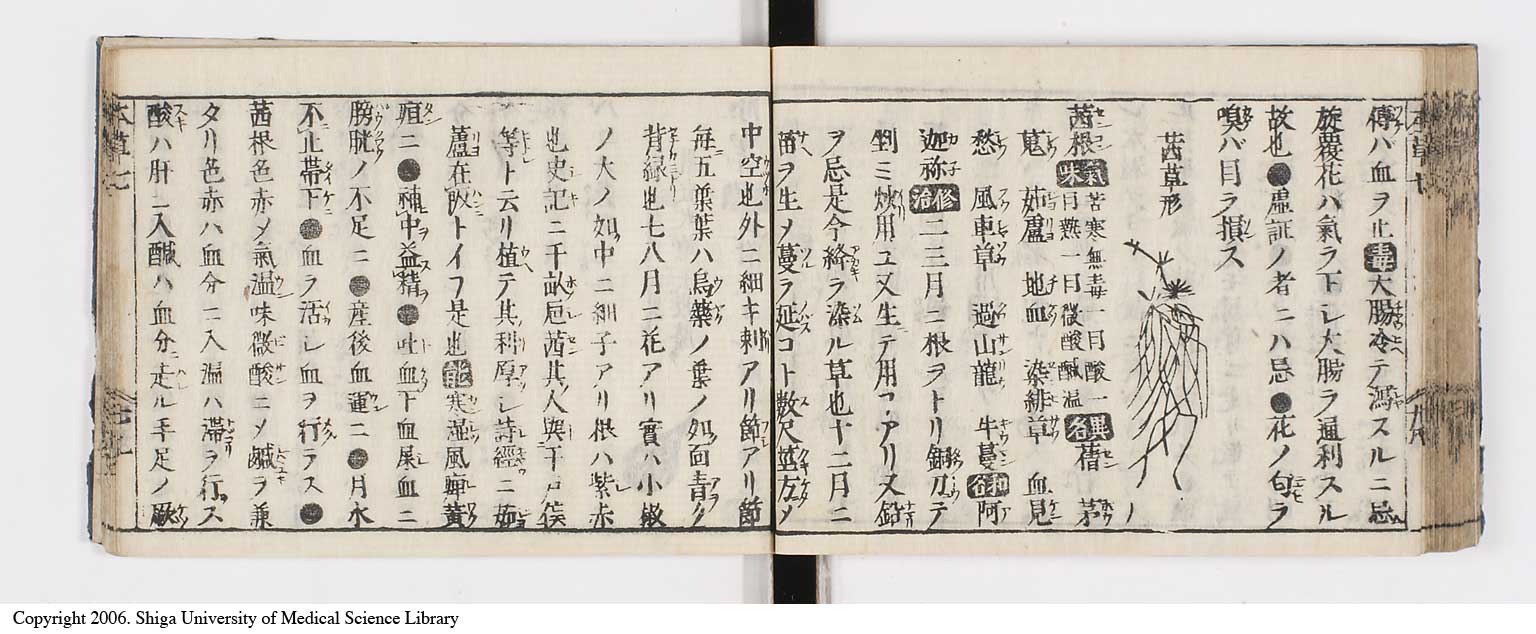 傅ハ血ヲ止毒大腸冷テ瀉スルニ忌
旋覆花ハ氣ヲ下シ大腸ヲ通利スル
故也●虚証ノ者ニハ忌●花ノ匂ヲ
嗅バ目ヲ損ス
茜草形
茜根氣味苦寒無毒一曰酸一曰熱一曰微酸鹹温異名蒨 茅
蒐 茹藘 地血 染緋草 血見
愁 風車草 過山龍 牛蔓和名阿
迦祢修治二三月ニ根ヲトリ銅刀テ
剉ミ炒用ユ又生テ用コアリ又鉛
ヲ忌是今絳ヲ染ル草也十二月ニ
苗ヲ生メ蔓ヲ延コト数尺莖方メ
中空也外ニ細キ刺アリ節アリ節
毎五葉葉ハ烏藥ノ葉ノ如面青ク
背緑也七八月ニ花アリ實ハ小椒
ノ大ノ如中ニ細子アリ根ハ紫赤
也史記ニ千畝巵茜其人與千戸侯
等ト云リ植テ其利厚シ詩經ニ茹
藘在阪トイフ是也能寒湿風痺黄
疸ニ●補中益精●吐血下血尿血ニ
膀胱ノ不足ニ●産後血運ニ●月水
不止帯下●血ヲ活シ血ヲ行ラス●
茜根色赤メ氣温味微酸ニメ鹹ヲ兼
タリ色赤ハ血分ニ入温ハ滞ヲ行ス
酸ハ肝ニ入鹹ハ血分ニ走ル手足ノ厥
本草七